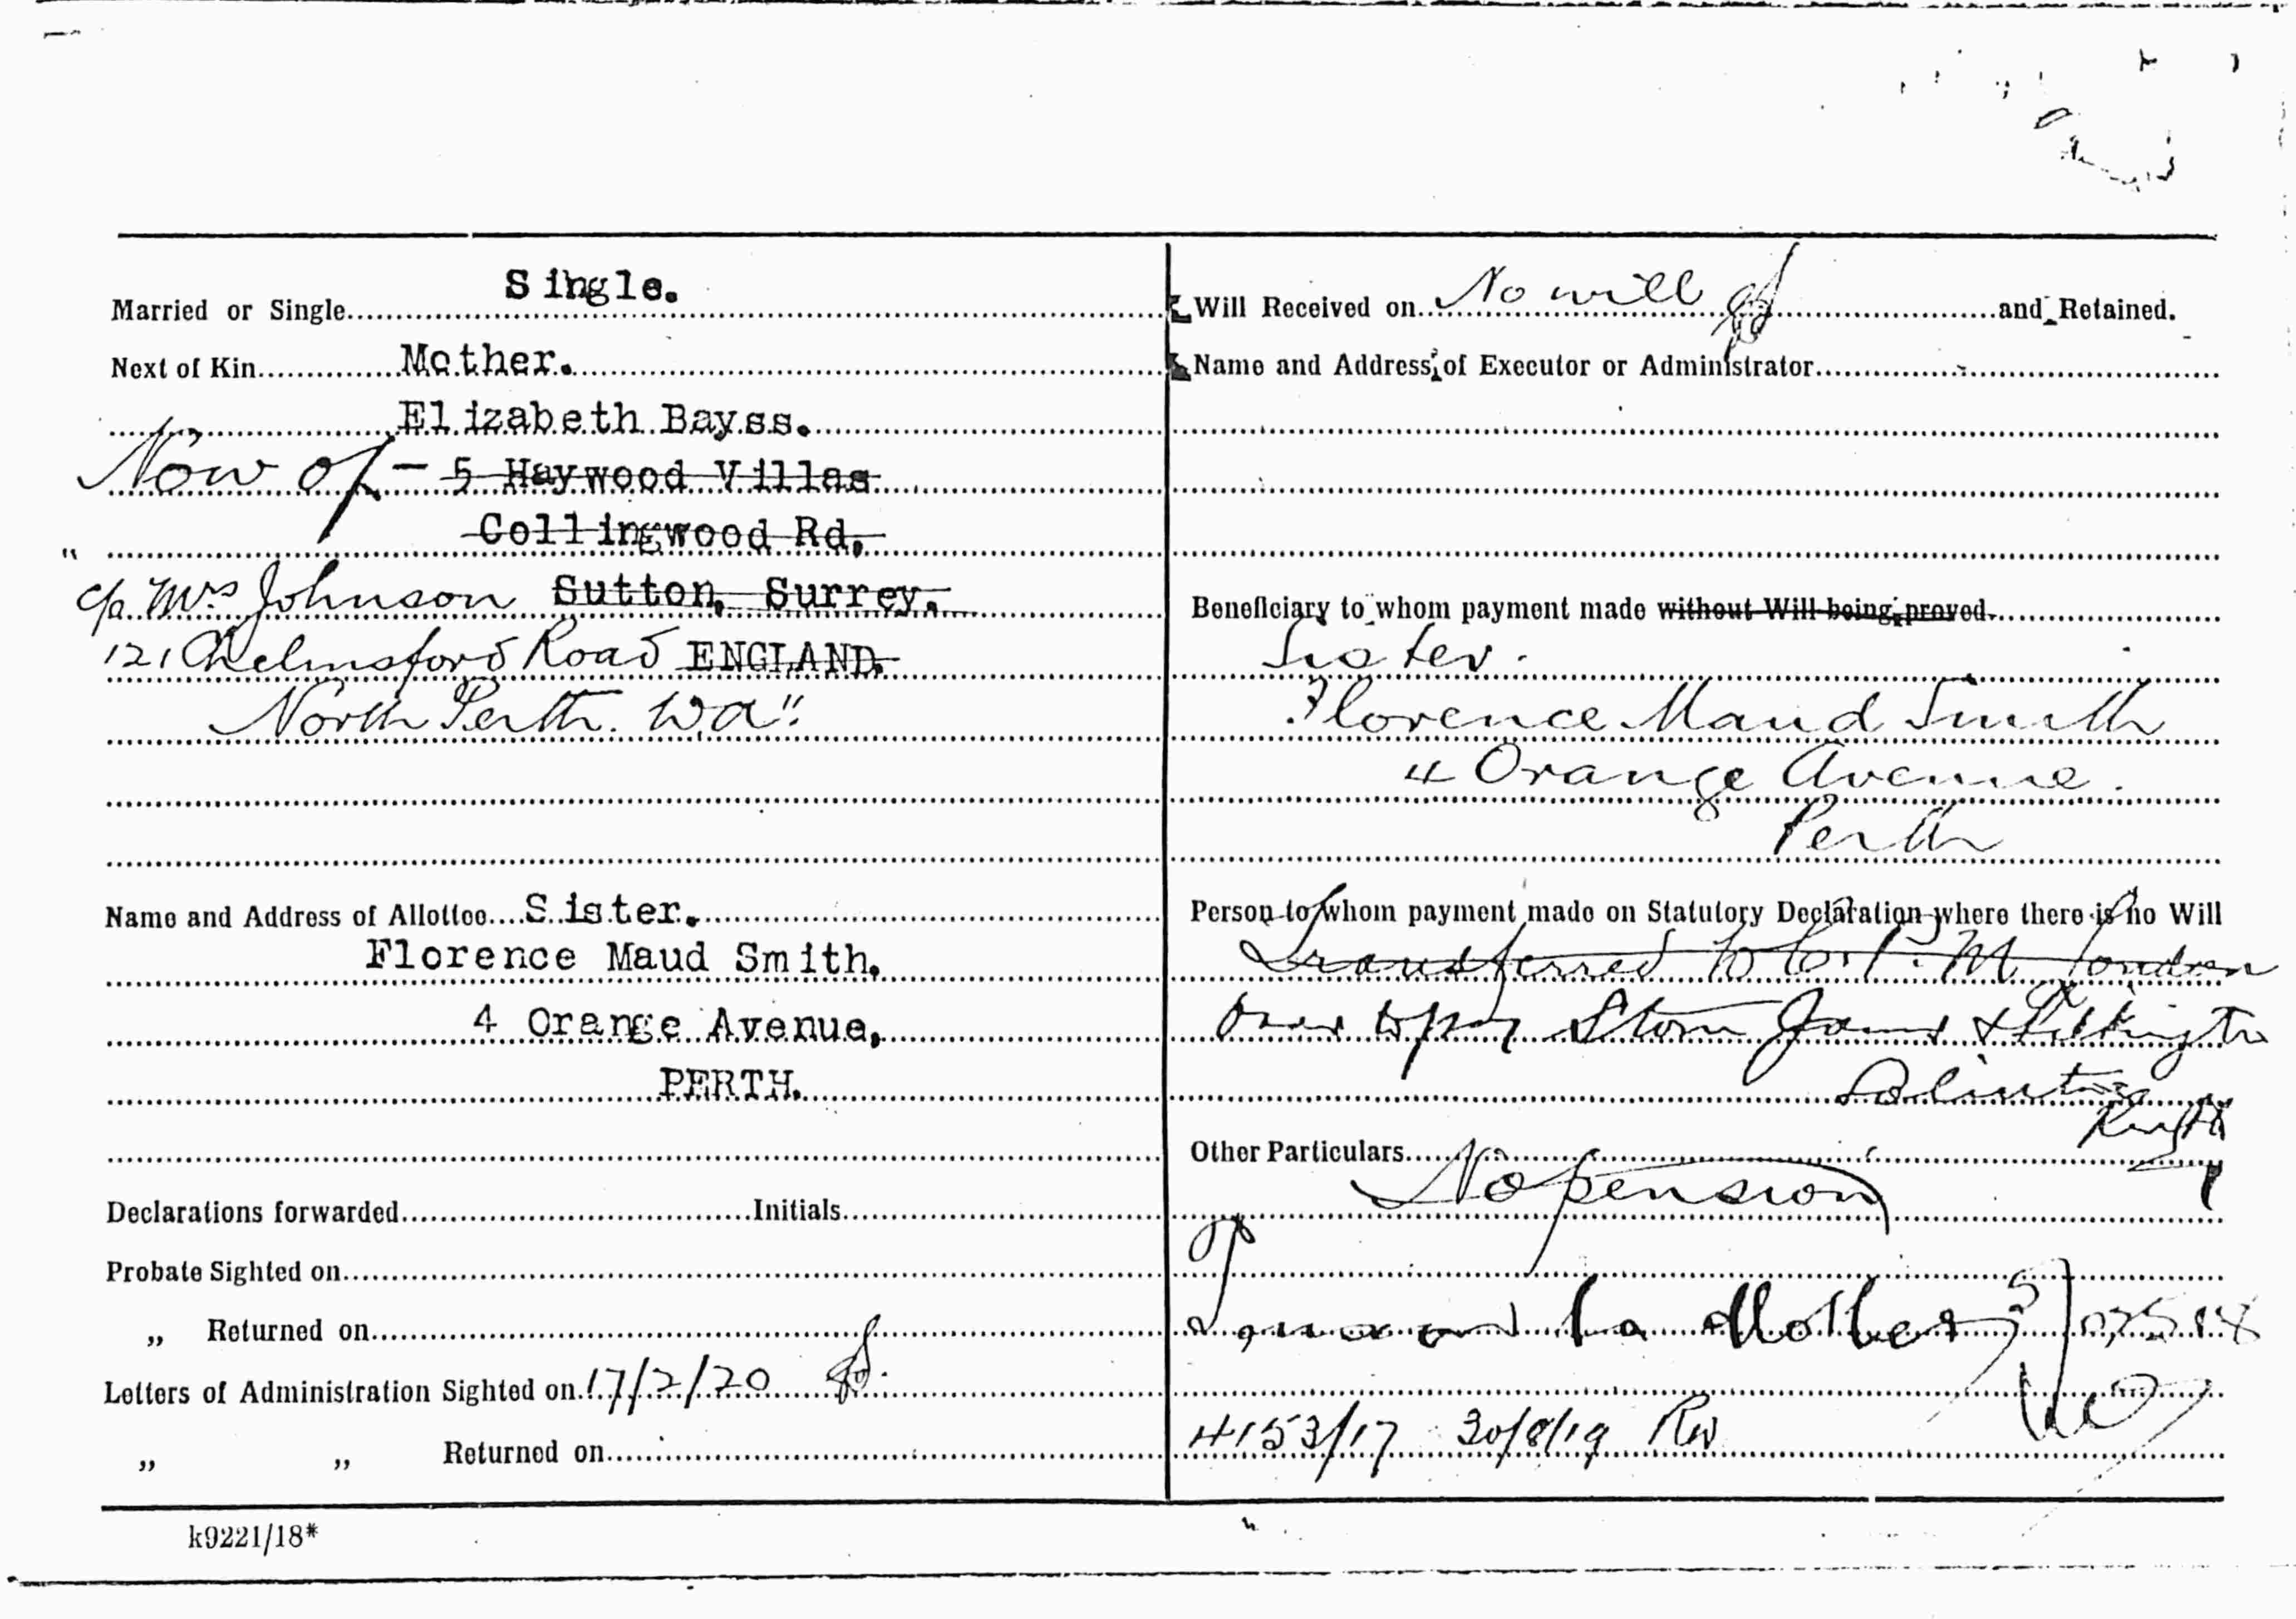 Married or Single Single.
Next of Kin Mother.
Elizabeth Bayss.
Now of - 5 Haywood Villas
Collingwood Rd,
c/o Mrs Johnson Sutton, Surrey.
121 Chelmsford Road ENGLAND.
North Perth. W.A"
Name and Address of Allottee Sister.
Florence Maud Smith,
4 Orange Avenue,
PERTH.
Declarations forwarded Initials
Probate Sighted on
„ Returned on
Letters of Administration Sighted on 17/2/20
„ „ Returned on
k9221/18*
Will Received on No will and Retained.
Name and Address of Executor or Administrator
Beneficiary to whom payment made without Will being proved.
Sister.
Florence Maud Smith
4 Orange Avenue.
Perth
Person to whom payment made on Statutory Declaration where there is no Will
Transferred to M. London
to pay Stone James & Pilkington
Other Particulars
No pension
to Mother
4153/17 30/8/19 RW